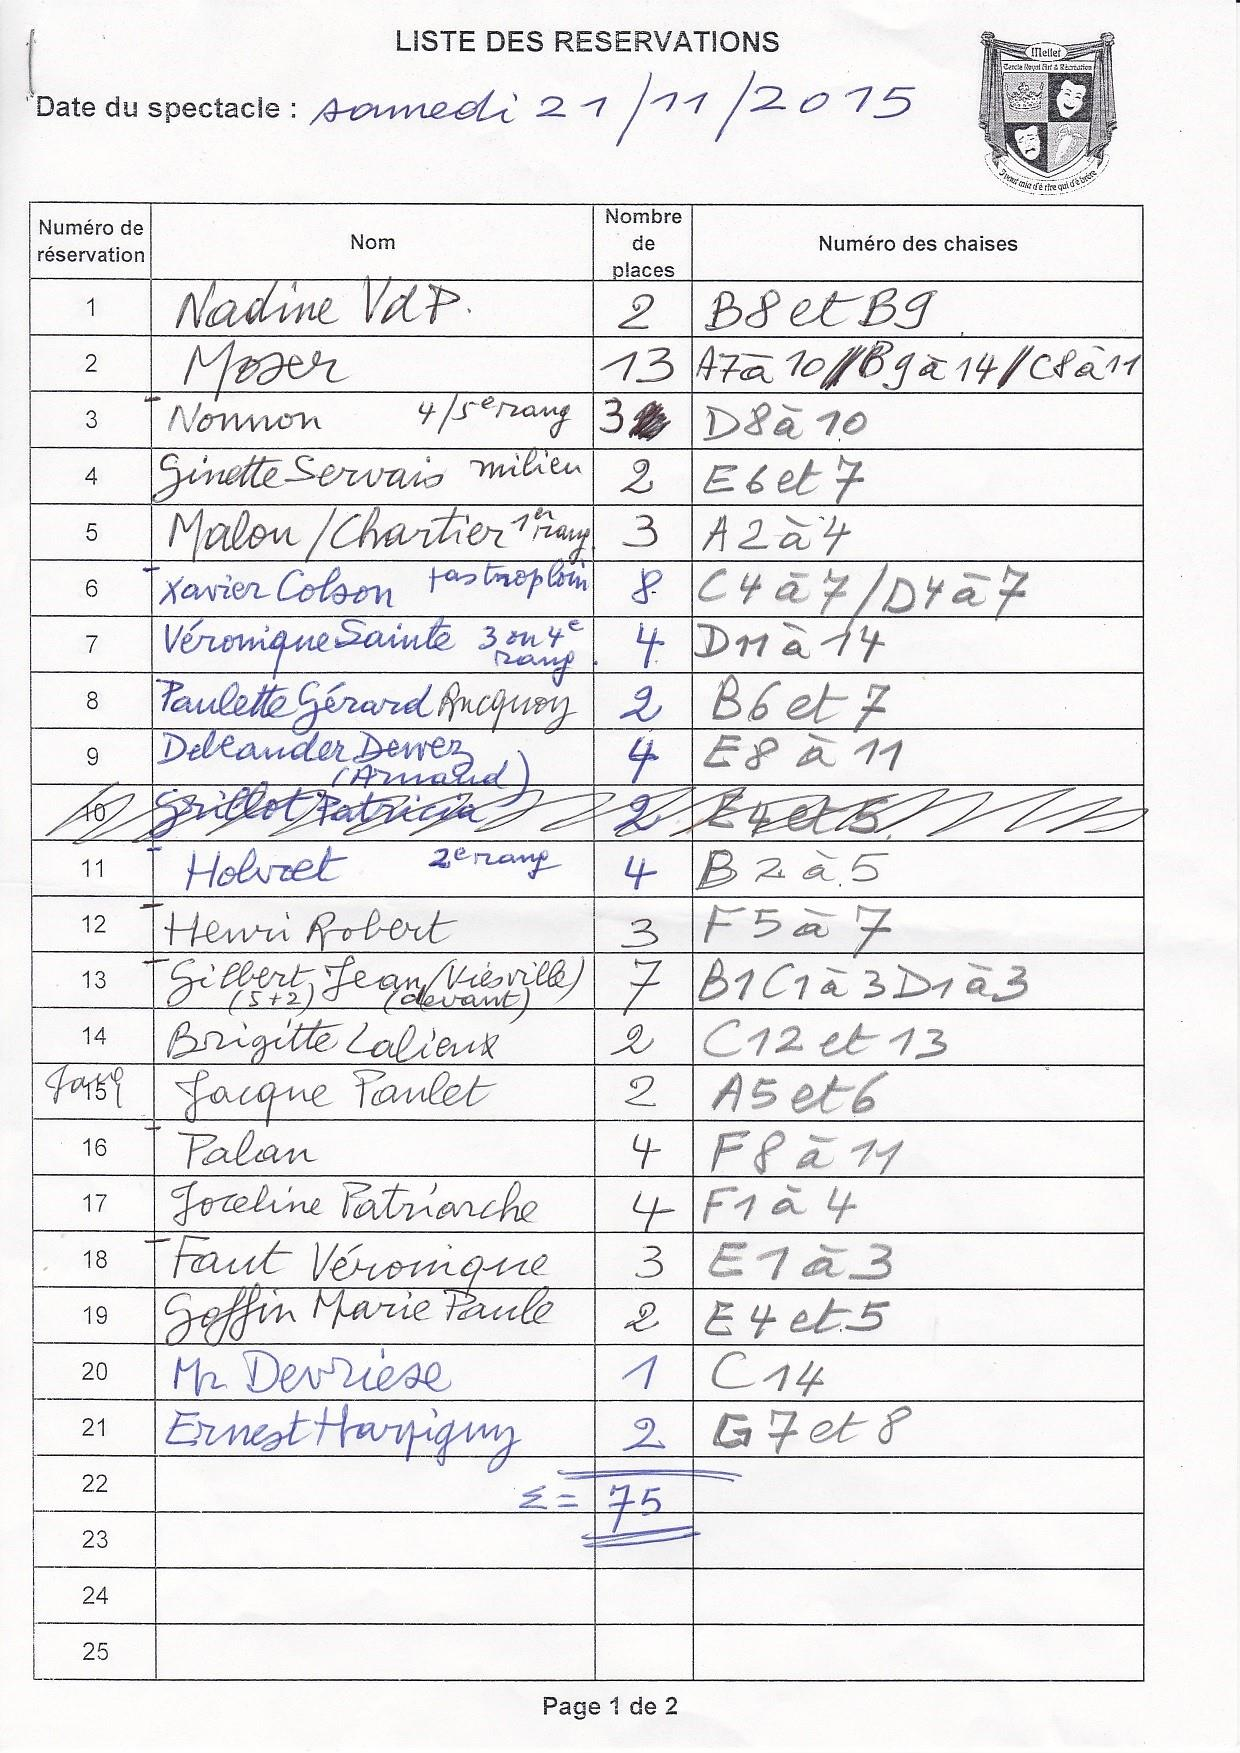 LISTE DES RESERVATIONS
Date du spectacle : samedi 21/11/2015
Mellet
Cercle Royal Art & Récréation
Numéro de réservation Nom Nombre de places Numéro des chaises
1 Nadine VdP. 2 B8 et B9
2 Moser 13 A7 à 10 // B9 à 14 / C8 à 11
3 Nonnon 4/5e rang 3 D8 à 10
4 Ginette Servais milieu 2 E6 et 7
5 Malou / Chartier 1er rang 3 A2 à 4
6 Xavier Colson pas trop loin 8 C4 à 7 / D4 à 7
7 Véronique Sainte 3 ou 4e rang 4 D11 à 14
8 Paulette Gérard Rucquoy 2 B6 et 7
9 Deleander Dewez (Arnaud) 4 E8 à 11
10 Grillot Patricia 2 E4 et 5
11 Holvoet 2e rang 4 B2 à 5
12 Henri Robert 3 F5 à 7
13 Gilbert Jean (Viesville) (5+2) (devant) 7 B1 C1 à 3 D1 à 3
14 Brigitte Lalieux 2 C12 et 13
15 Jacque Paulet 2 A5 et 6
16 Palan 4 F8 à 11
17 Joceline Patriarche 4 F1 à 4
18 Faut Véronique 3 E1 à 3
19 Goffin Marie Paule 2 E4 et 5
20 Mr Devriese 1 C14
21 Ernest Harpigny 2 G7 et 8
22 Σ = 75
23
24
25
Page 1 de 2